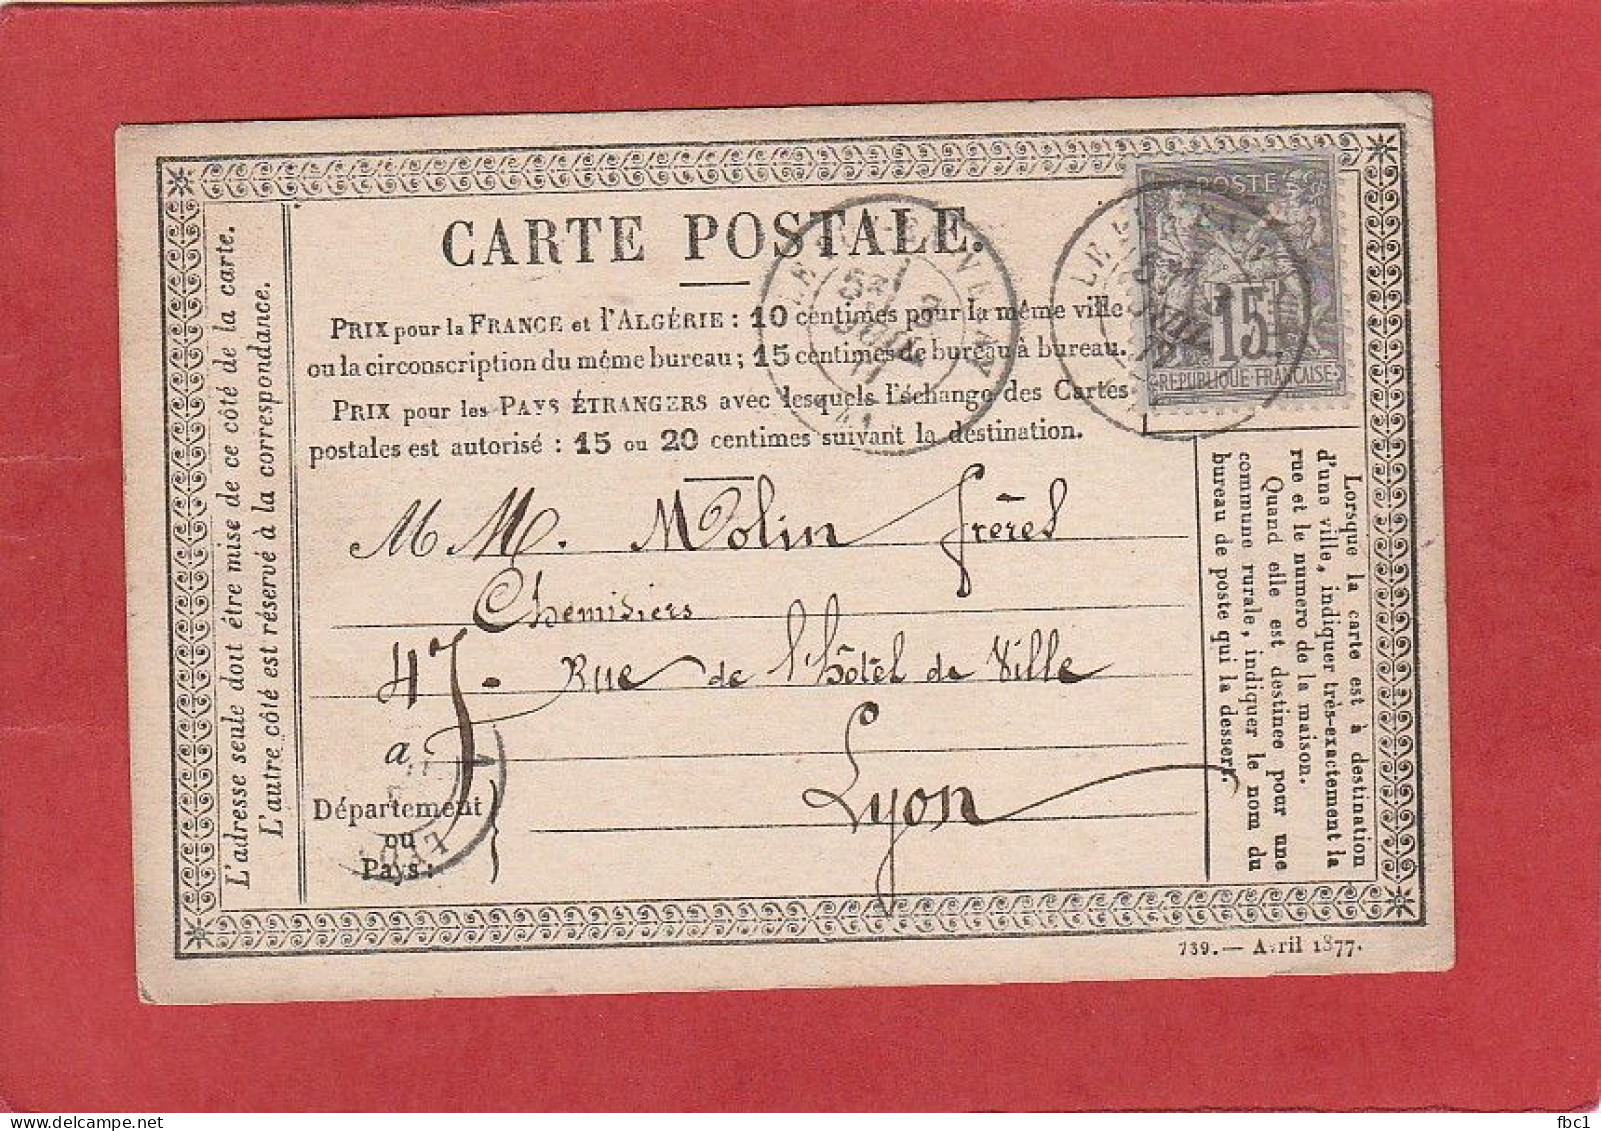 CARTE POSTALE.
PRIX pour la FRANCE et l'ALGÉRIE : 10 centimes pour la même ville
ou la circonscription du même bureau ; 15 centimes de bureau à bureau.
PRIX pour les PAYS ÉTRANGERS avec lesquels l'échange des Cartes
postales est autorisé : 15 ou 20 centimes suivant la destination.
POSTE
15
REPUBLIQUE FRANÇAISE
M M. Molin frères
Chemisiers
47 - Rue de l'hôtel de Ville
a
Lyon
Département
ou
Pays :
L'adresse seule doit être mise de ce côté de la carte.
L'autre côté est réservé à la correspondance.
Lorsque la carte est à destination
d'une ville, indiquer très-exactement la
rue et le numero de la maison.
Quand elle est destinée pour une
commune rurale, indiquer le nom du
bureau de poste qui la dessert.
739. — Avril 1877.
fbc1